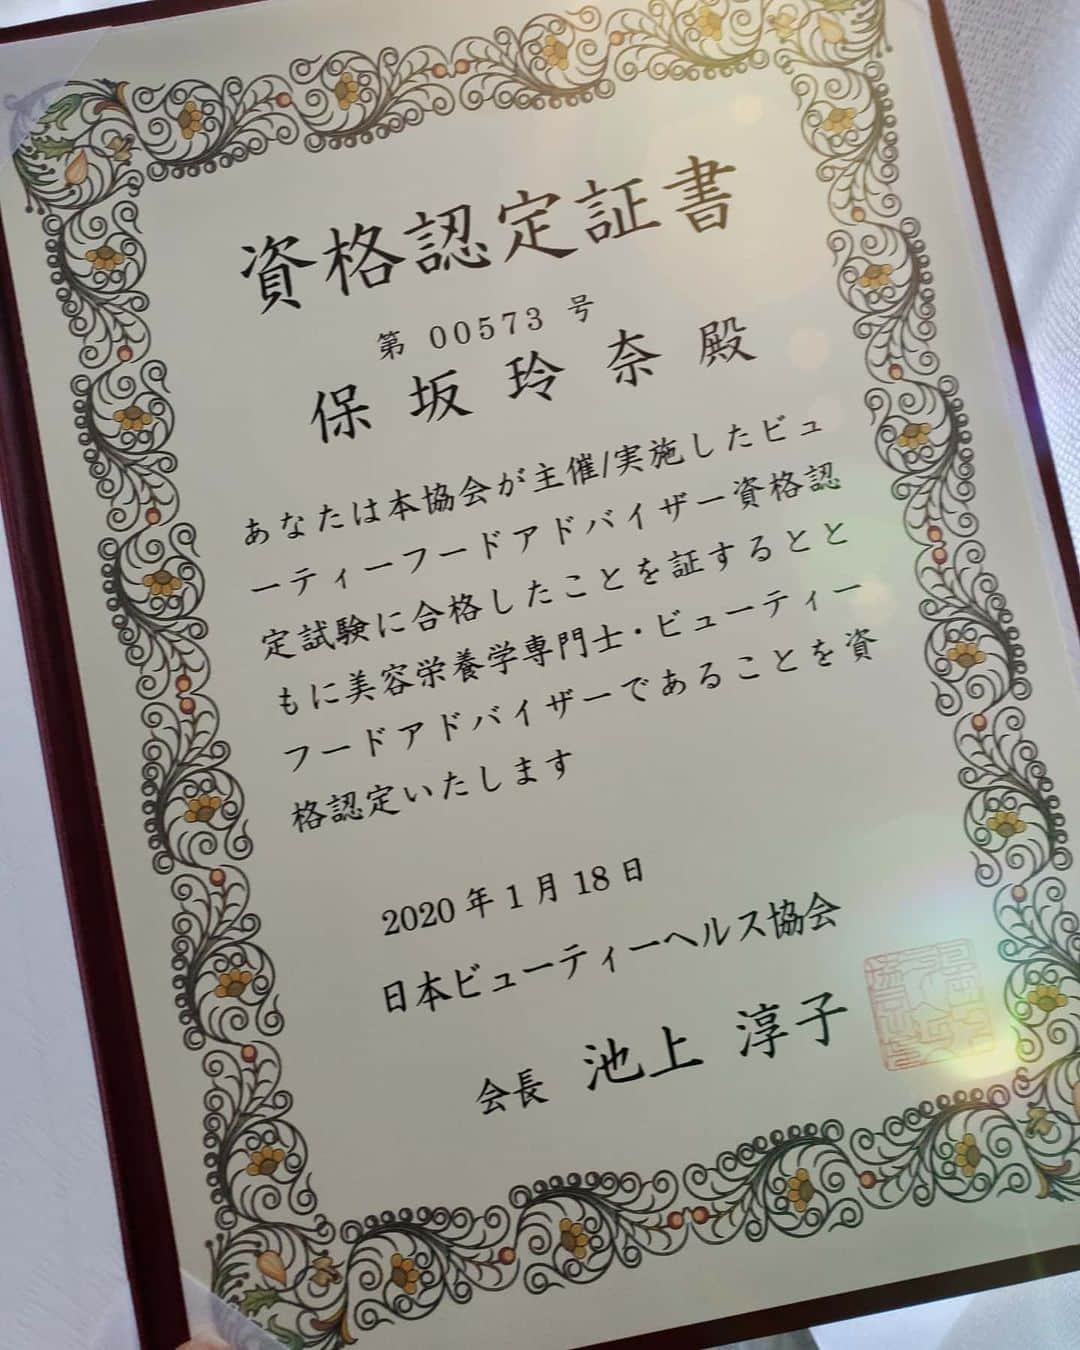 資格認定証書
第 00573 号
保坂玲奈殿
あなたは本協会が主催/実施したビュ
ーティーフードアドバイザー資格認
定試験に合格したことを証するとと
もに美容栄養学専門士・ビューティー
フードアドバイザーであることを資
格認定いたします
2020年1月18日
日本ビューティーヘルス協会
会長 池上 淳子